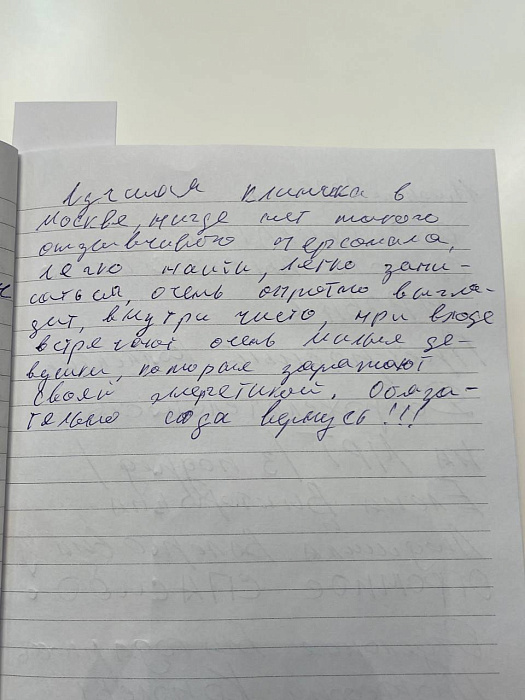 Лучшая клиника в
Москве, нигде нет такого
отзывчивого персонала,
легко найти, легко запи-
саться, очень опрятно выгля-
дит, внутри чисто, при входе
встречают очень милые де-
вушки, которые заражают
своей энергетикой. Обяза-
тельно сюда вернусь!!!